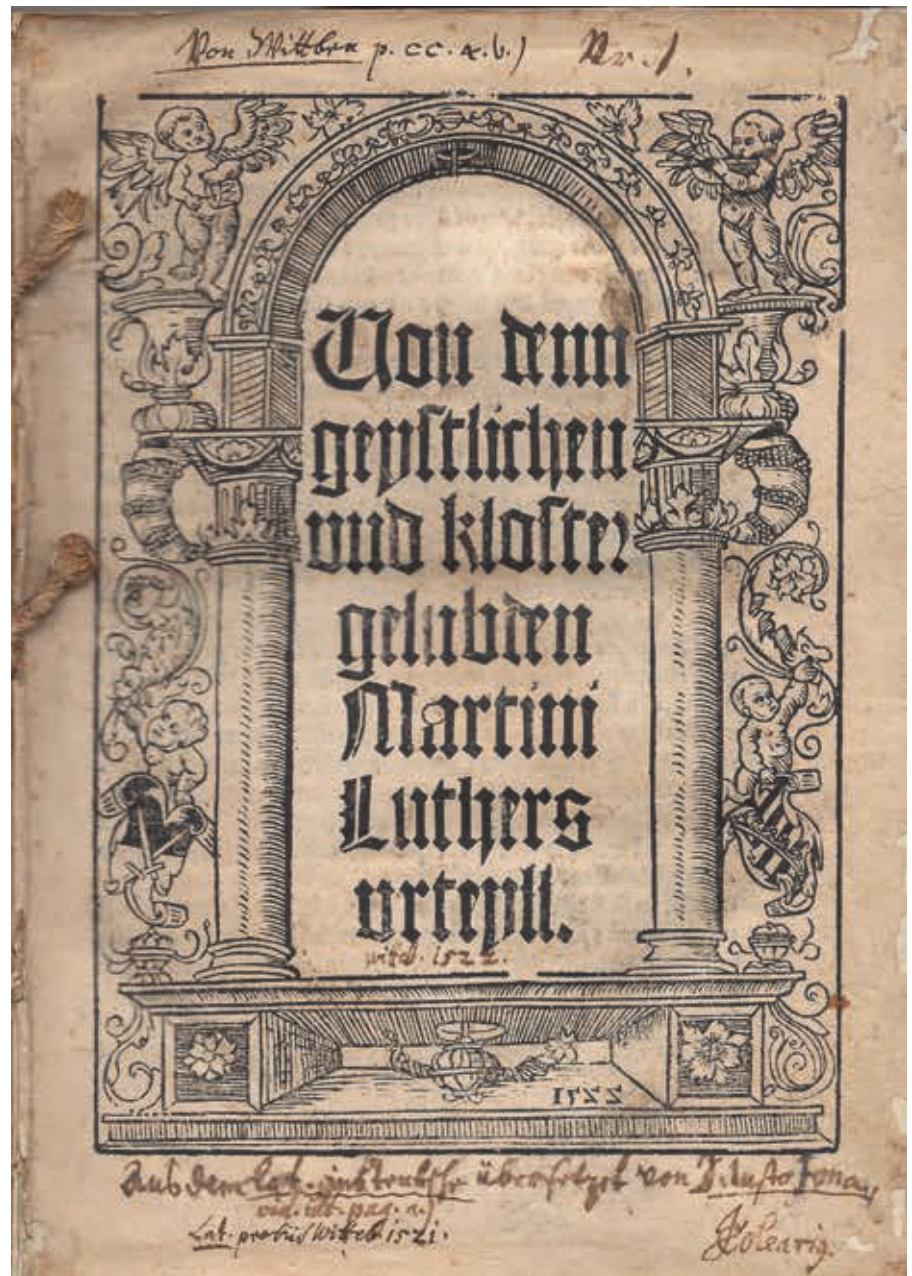 Von Wittben p. CC. æ. b.) Nr. 1.
Von denn
geystlichen
vnd kloster
gelubden
Martini
Luthers
vrteyll.
witeb. 1522.
1522
Aus dem Lat. ins teutsche übersetzet von D. Justo Jona,
vid. int. pag. a.)
Lat. prodiit Witteb. 1521.
JColearig.